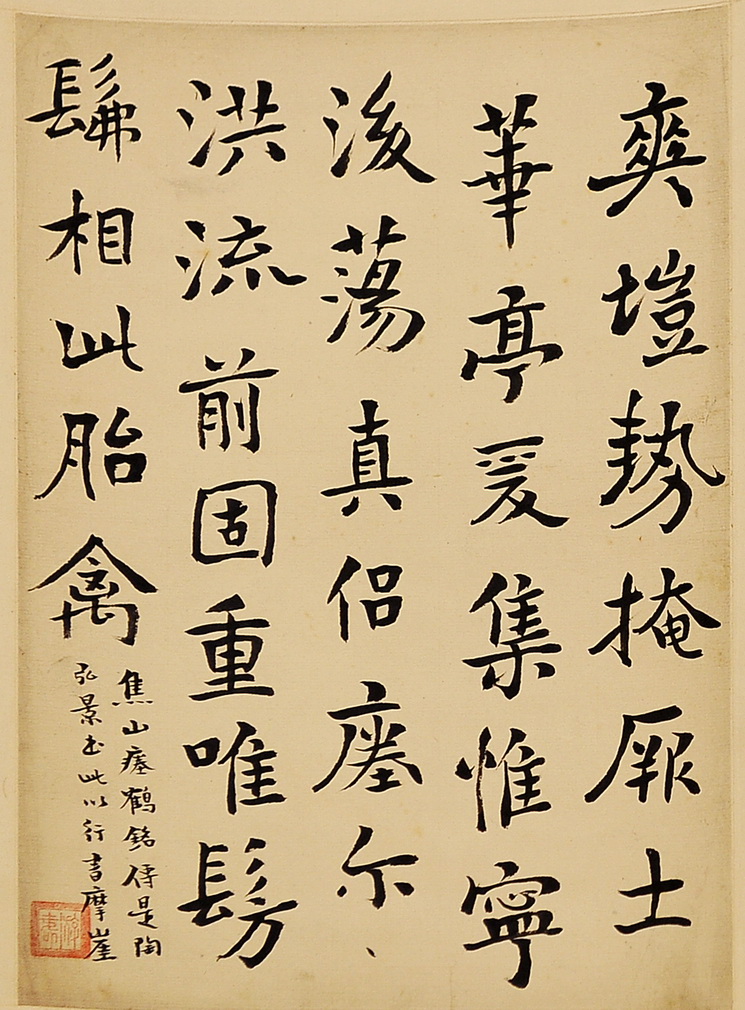 爽塏勢掩厥土
華亭爰集惟寧
後蕩真侶瘞尓、
洪流前固重唯髣
髴相此胎禽
焦山瘞鶴銘傳是陶
弘景書此以行書摩崖